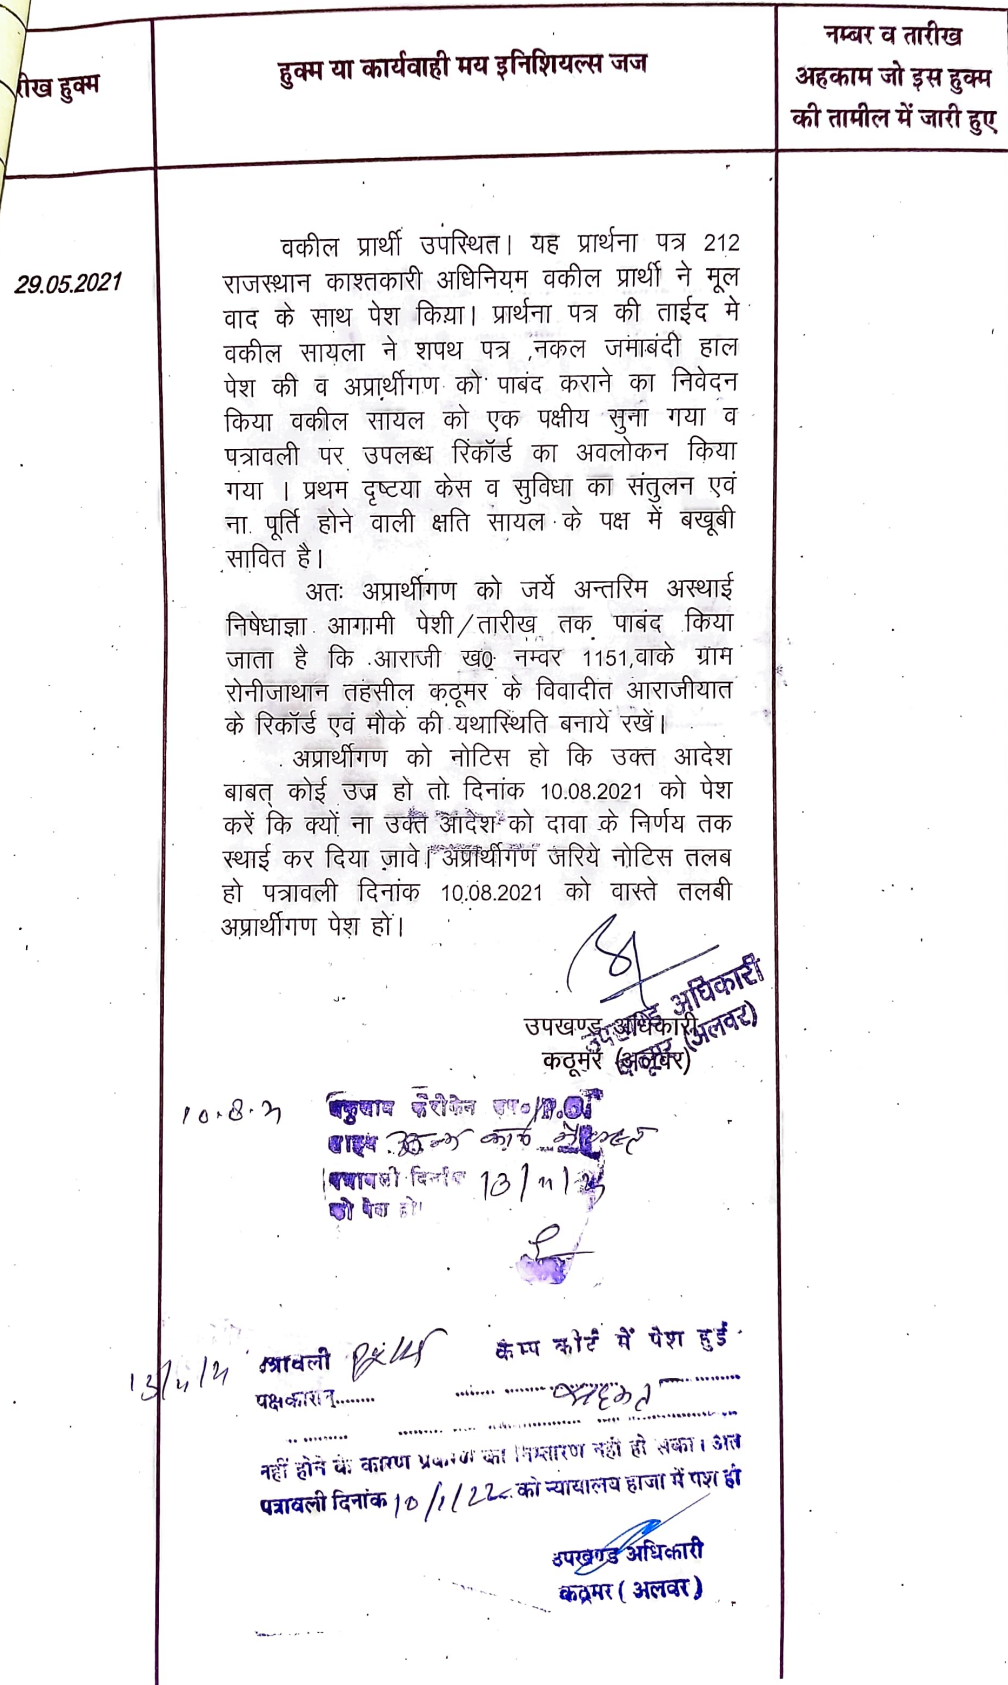 रीख हुक्म
हुक्म या कार्यवाही मय इनिशियल्स जज
नम्बर व तारीख
अहकाम जो इस हुक्म
की तामील में जारी हुए
29.05.2021
वकील प्रार्थी उपस्थित। यह प्रार्थना पत्र 212
राजस्थान काश्तकारी अधिनियम वकील प्रार्थी ने मूल
वाद के साथ पेश किया। प्रार्थना पत्र की ताईद मे
वकील सायला ने शपथ पत्र ,नकल जमाबंदी हाल
पेश की व अप्रार्थीगण को पाबंद कराने का निवेदन
किया वकील सायल को एक पक्षीय सुना गया व
पत्रावली पर उपलब्ध रिकॉर्ड का अवलोकन किया
गया । प्रथम दृष्टया केस व सुविधा का संतुलन एवं
ना पूर्ति होने वाली क्षति सायल के पक्ष में बखूबी
सावित है।
अतः अप्रार्थीगण को जर्ये अन्तरिम अस्थाई
निषेधाज्ञा आगामी पेशी/तारीख तक पाबंद किया
जाता है कि आराजी ख0 नम्वर 1151,वाके ग्राम
रोनीजाथान तहसील कठूमर के विवादीत आराजीयात
के रिकॉर्ड एवं मौके की यथास्थिति बनाये रखें।
अप्रार्थीगण को नोटिस हो कि उक्त आदेश
बाबत् कोई उज्र हो तो दिनांक 10.08.2021 को पेश
करें कि क्यों ना उक्त आदेश को दावा के निर्णय तक
स्थाई कर दिया जावे। अप्रार्थीगण जरिये नोटिस तलब
हो पत्रावली दिनांक 10.08.2021 को वास्ते तलबी
अप्रार्थीगण पेश हों।
उपखण्ड अधिकारी
कठूमर (अलवर)
उपखण्ड अधिकारी
कठूमर (अलवर)
10.8.21
पत्रावली दिनांक 13/11/21
को पेश हो।
13/11/21
पत्रावली कैम्प कोर्ट में पेश हुई
पक्षकारान्........
नहीं होने के कारण प्रकरण का निस्तारण नहीं हो सका। अत
पत्रावली दिनांक 10/1/22 को न्यायालय हाजा में पेश हो
उपखण्ड अधिकारी
कठूमर (अलवर)